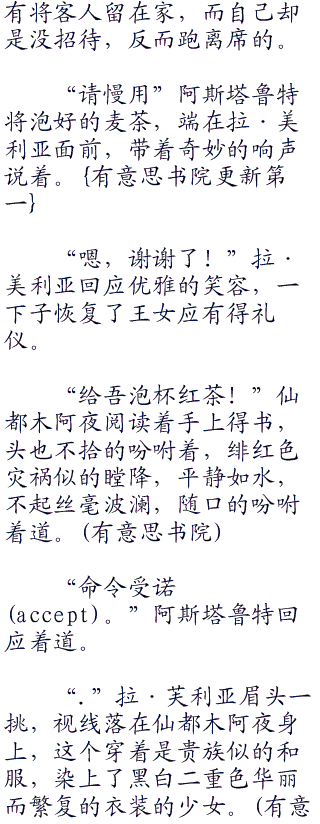 有将客人留在家，而自己却
是没招待，反而跑离席的。
“请慢用”阿斯塔鲁特
将泡好的麦茶，端在拉·美
利亚面前，带着奇妙的响声
说着。{有意思书院更新第
一}
“嗯，谢谢了！”拉·
美利亚回应优雅的笑容，一
下子恢复了王女应有得礼
仪。
“给吾泡杯红茶！”仙
都木阿夜阅读着手上得书，
头也不拾的吩咐着，绯红色
灾祸似的瞠降，平静如水，
不起丝毫波澜，随口的吩咐
着道。(有意思书院)
“命令受诺
(accept)。”阿斯塔鲁特回
应着道。
“.”拉·芙利亚眉头一
挑，视线落在仙都木阿夜身
上，这个穿着是贵族似的和
服，染上了黑白二重色华丽
而繁复的衣装的少女。(有意